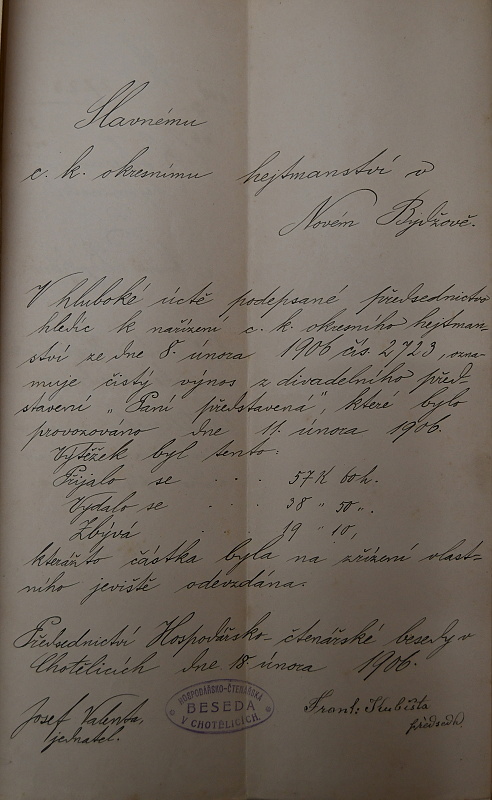 Slavnému
c. k. okresnímu hejtmanství v
Novém Bydžově.
V hluboké úctě podepsané předsednictvo
hledíc k nařízení c. k. okresního hejtman-
ství ze dne 8. února 1906 čís. 2723, ozna-
muje čistý výnos z divadelního před-
stavení „Paní představená", které bylo
provozováno dne 11. února 1906.
Výtěžek byl tento:
Přijalo se . . . 57 K 60 h.
Vydalo se . . . 38 " 50 ".
Zbývá . . . 19 " 10,
kterážto částka byla na zřízení vlast-
ního jeviště odevzdána.
Předsednictví Hospodářsko-čtenářské besedy v
Chotělicích dne 18. února 1906.
HOSPODÁŘSKO-ČTENÁŘSKÁ
BESEDA
V CHOTĚLICÍCH.
Josef Valenta,
jednatel.
Frant. Kubišta
předsed.